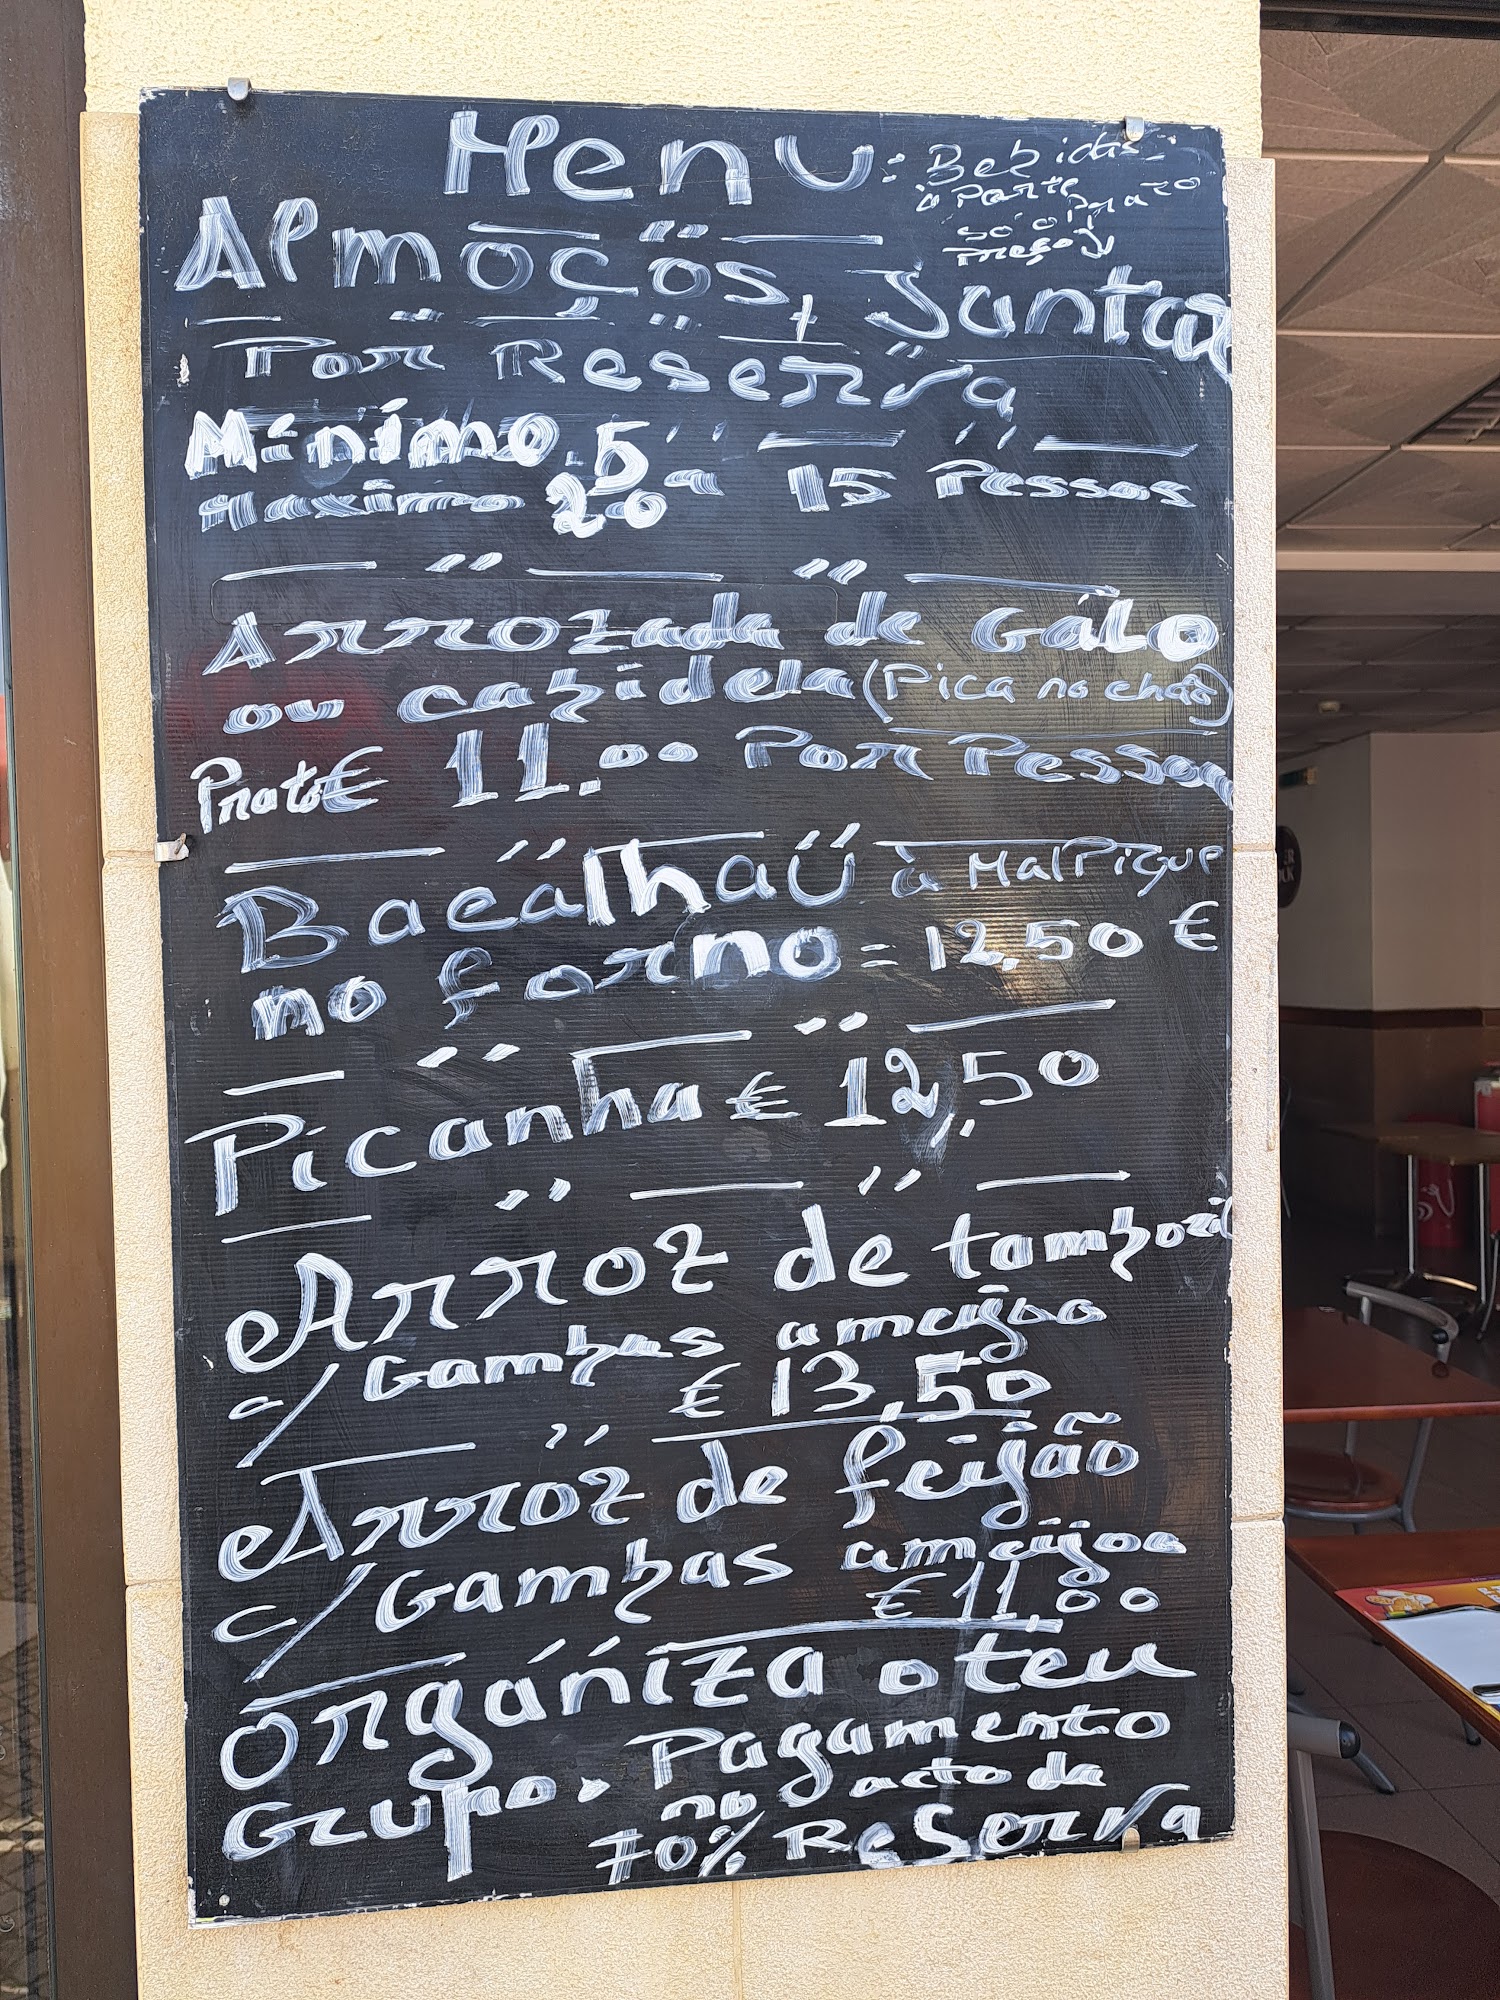 Menu: Bebidas
à Parte
só o Prato
Preço
Almoços, Jantar
Por Reserva
Mínimo 5 a 15 Pessoas
Maximo 20
Arrozada de Galo
ou cabidela (Pica no chão)
Prato € 11.00 Por Pessoa
Bacalhau à MalPique
no forno = 12,50 €
Picanha € 12,50
Arroz de tamboril
c/ Gambas ameijoa
€ 13,50
Arroz de feijão
c/ Gambas ameijoa
€ 11,00
Organiza o teu
Grupo. Pagamento
no acto da
70% Reserva